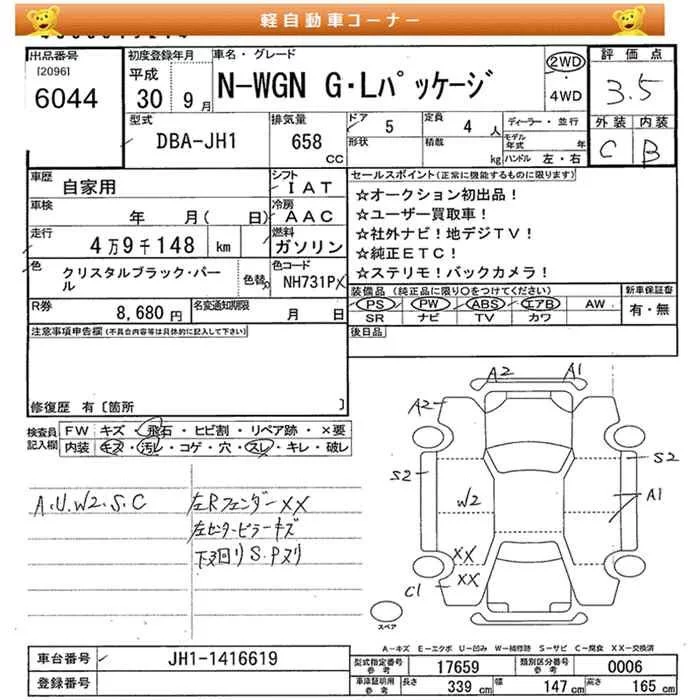 軽自動車コーナー
出品番号
[2096]
6044
初度登録年月
平成
30 9月
車名・グレード
N-WGN G・Lパッケージ
2WD
4WD
評価点
3.5
外装 内装
C B
型式
DBA-JH1
排気量
658
CC
ドア
5
定員
4 人
形状
積載
kg
ディーラー・並行
モデル年式 年
ハンドル 左・右
車歴
自家用
シフト
IAT
車検
年 月( 日)
冷房
AAC
走行
4万9千148 km
燃料
ガソリン
色
クリスタルブラック・パール
色替
カラーコード
NH731PX
R券
8,680円
名変通知期限
月 日
セールスポイント(正常に機能するものに限ります)
☆オークション初出品!
☆ユーザー買取車!
☆社外ナビ!地デジTV!
☆純正ETC!
☆ステリモ!バックカメラ!
装備品(純正品に限り○をつけてください)
PS PW ABS エアB AW
SR ナビ TV カワ
新車保証書
有・無
後日品
注意事項申告欄(不具合内容等は具体的に記入して下さい)
修復歴 有〔箇所 〕
検査員記入欄
FW キズ・飛石・ヒビ割・リペア跡・×要
内装 キズ・汚レ・コゲ・穴・スレ・キレ・破レ
A.U.W2.S.C
左Rフェンダーxx
左センターピラーキズ
下回りS.Pヌリ
A2 A1
A2
S2 S2
W2 A1
XX
XX
C1
スペア
A-キズ E-エクボ U-凹み W-補修跡 S-サビ C-腐食 XX-交換済
車台番号
JH1-1416619
登録番号
型式指定番号 参考
17659
類別区分番号 参考
0006
車庫証明用 参考
長さ 339 cm
幅 147 cm
高さ 165 cm